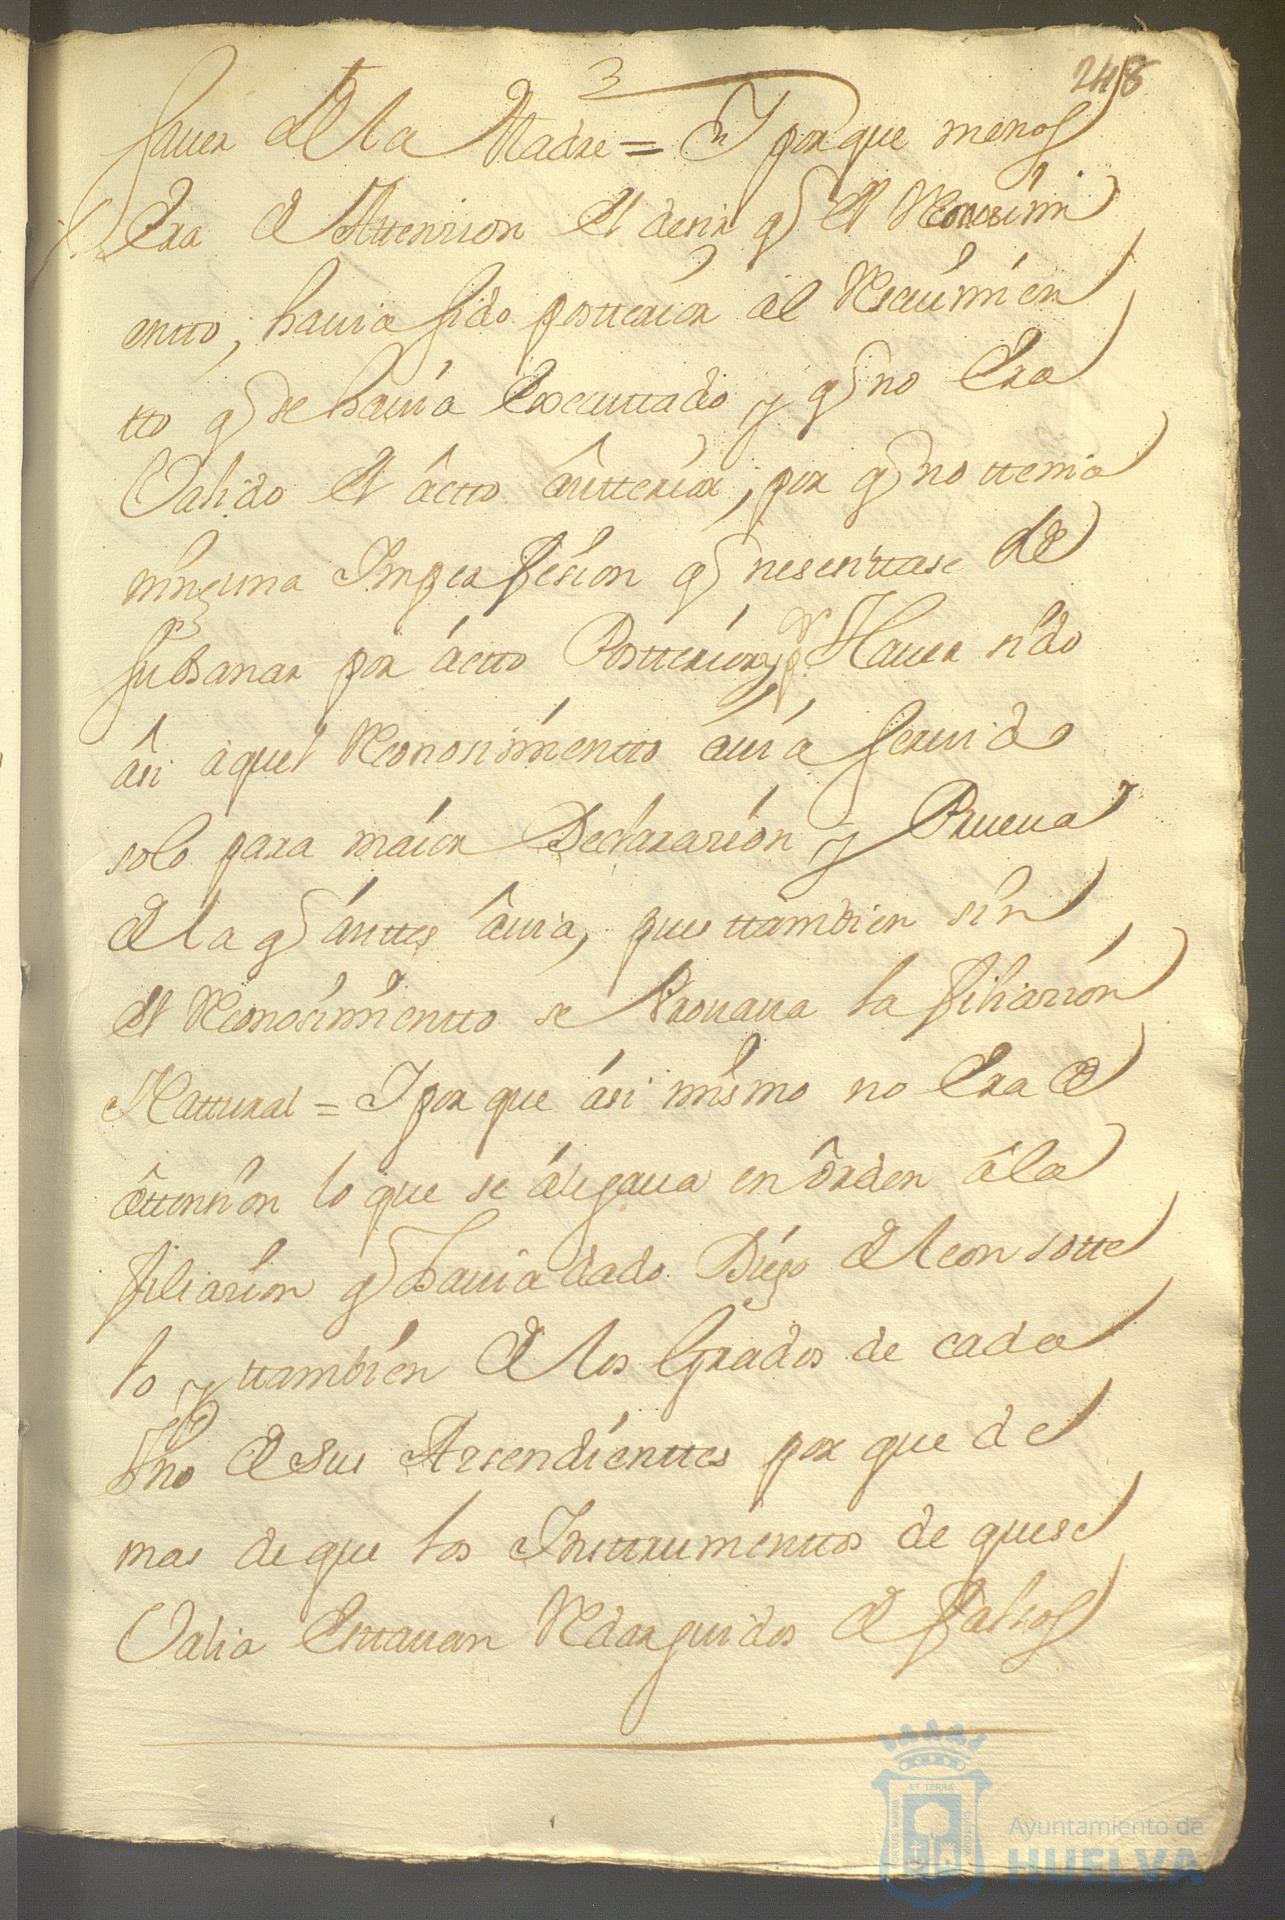 3
248
fauer de la Madre = Y porque menos
Era de Attension el desir q el Reconosimi
entto, hauia sido postterior al Recuimien
tto q se hauia Executtado, y q no Era
Valido el actto antterior, por q no ttenia
ninguna Imperfesion q nesesittase de
subsanar por actto Postterior, y pr Hauer sido
asi aquel Reconosimientto auia seruido
solo para maior Declarasion y Prueua
de la q anttes auia, pues ttambien sin
el Reconosimientto se Prouaua la filiasion
Nattural = Y porque asi mismo no Era de
attension lo que se alegaua en orden a la
filiasion q hauia dado Diego de leon sotte
lo y ttambien de los Grados de cada
Vno de sus Assendienttes por que de
mas de que los Insttrumenttos de quese
Valia Esttauan Redarguidos de falsos
Ayuntamiento de
HUELVA